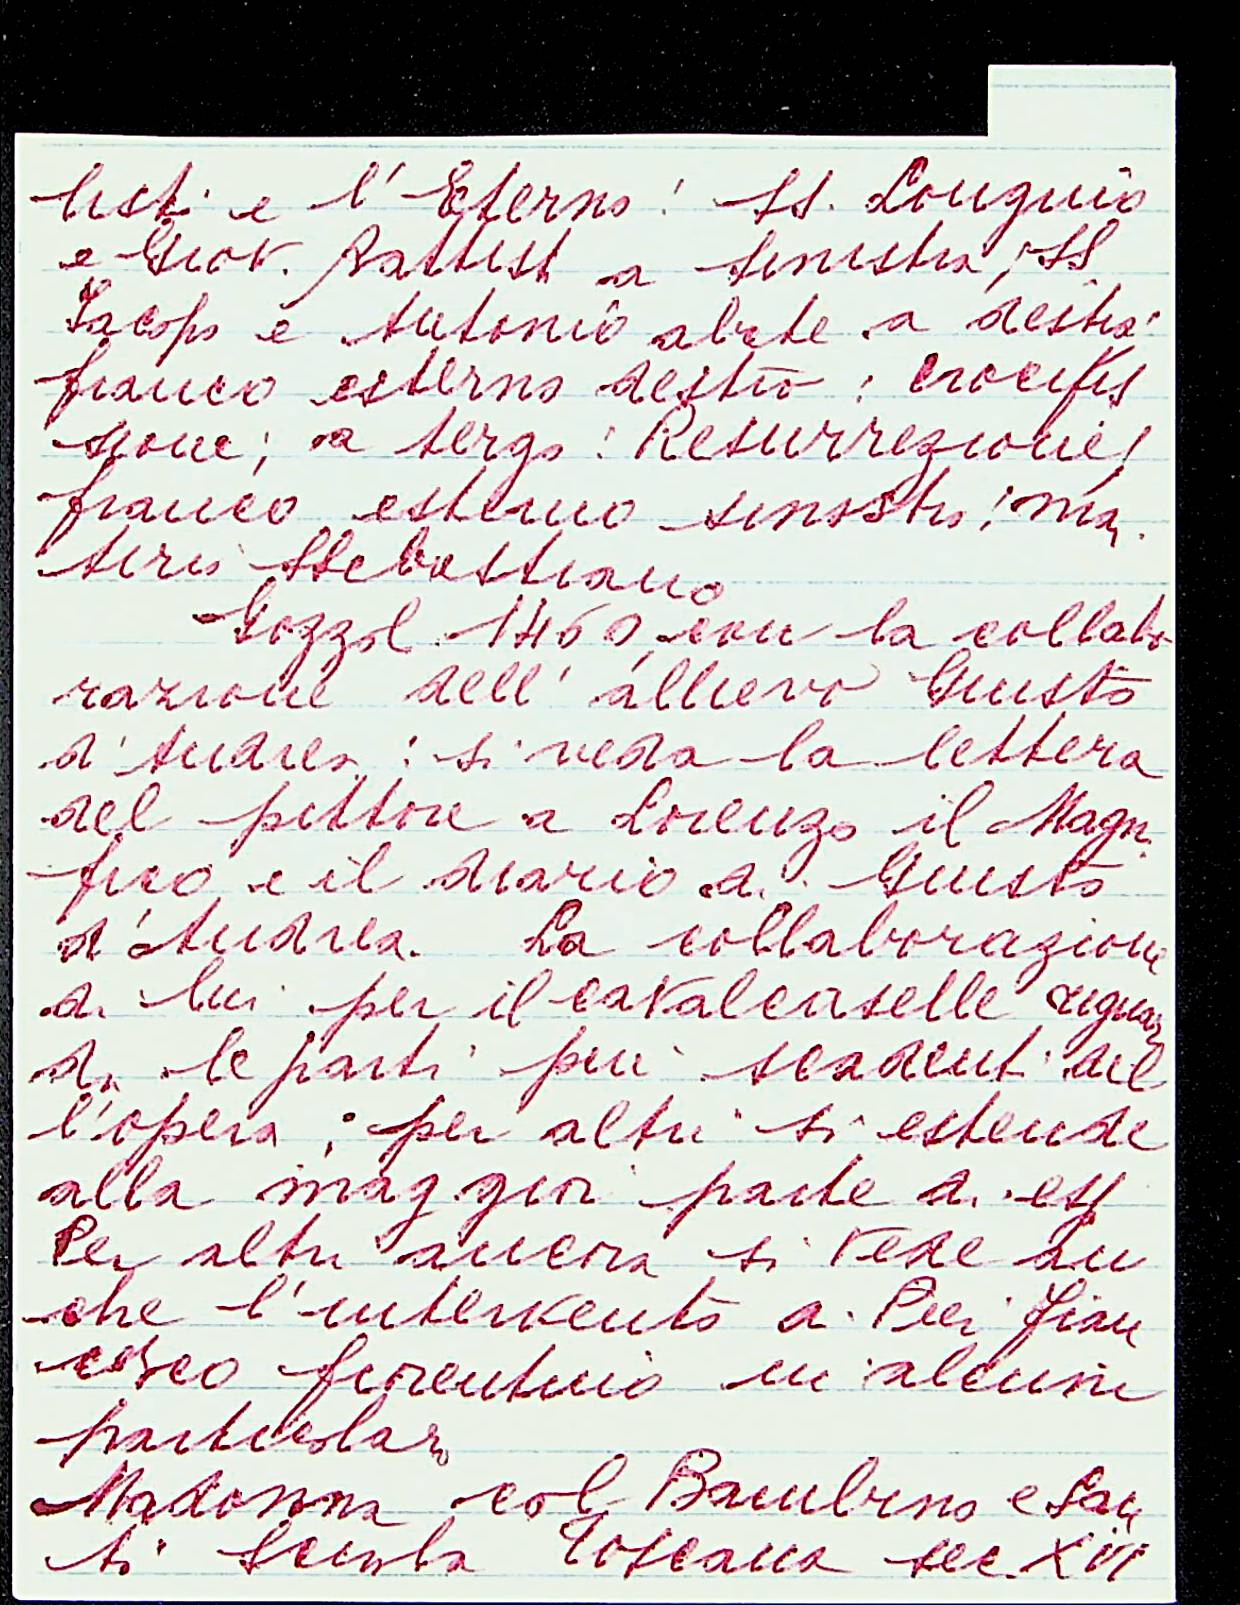 listi e l'Eterno; SS. Longino
e Giov. Battist a sinistra; SS
Iacopo e Antonio abate a destra:
fianco esterno destro: crocifis
sione; a tergo: Resurrezione;
fianco esterno sinistro: ma
tirio S Sebastiano
Gozzol. 1460, con la collabo
razione dell'allievo Giusto
d'Andrea: si veda la lettera
del pittore a Lorenzo il Magn
fico e il diario di Giusto
d'Andrea. La collaborazione
di lui per il Cavalcaselle riguar
da le parti più scadenti del
l'opera; per altri si estende
alla maggior parte di ess
Per altri ancora si vede an
che l'intervento di Pier Fran
cesco fiorentino in alcuni
particolari
Madonna col Bambino e San
ti Scuola Toscana sec. XVI